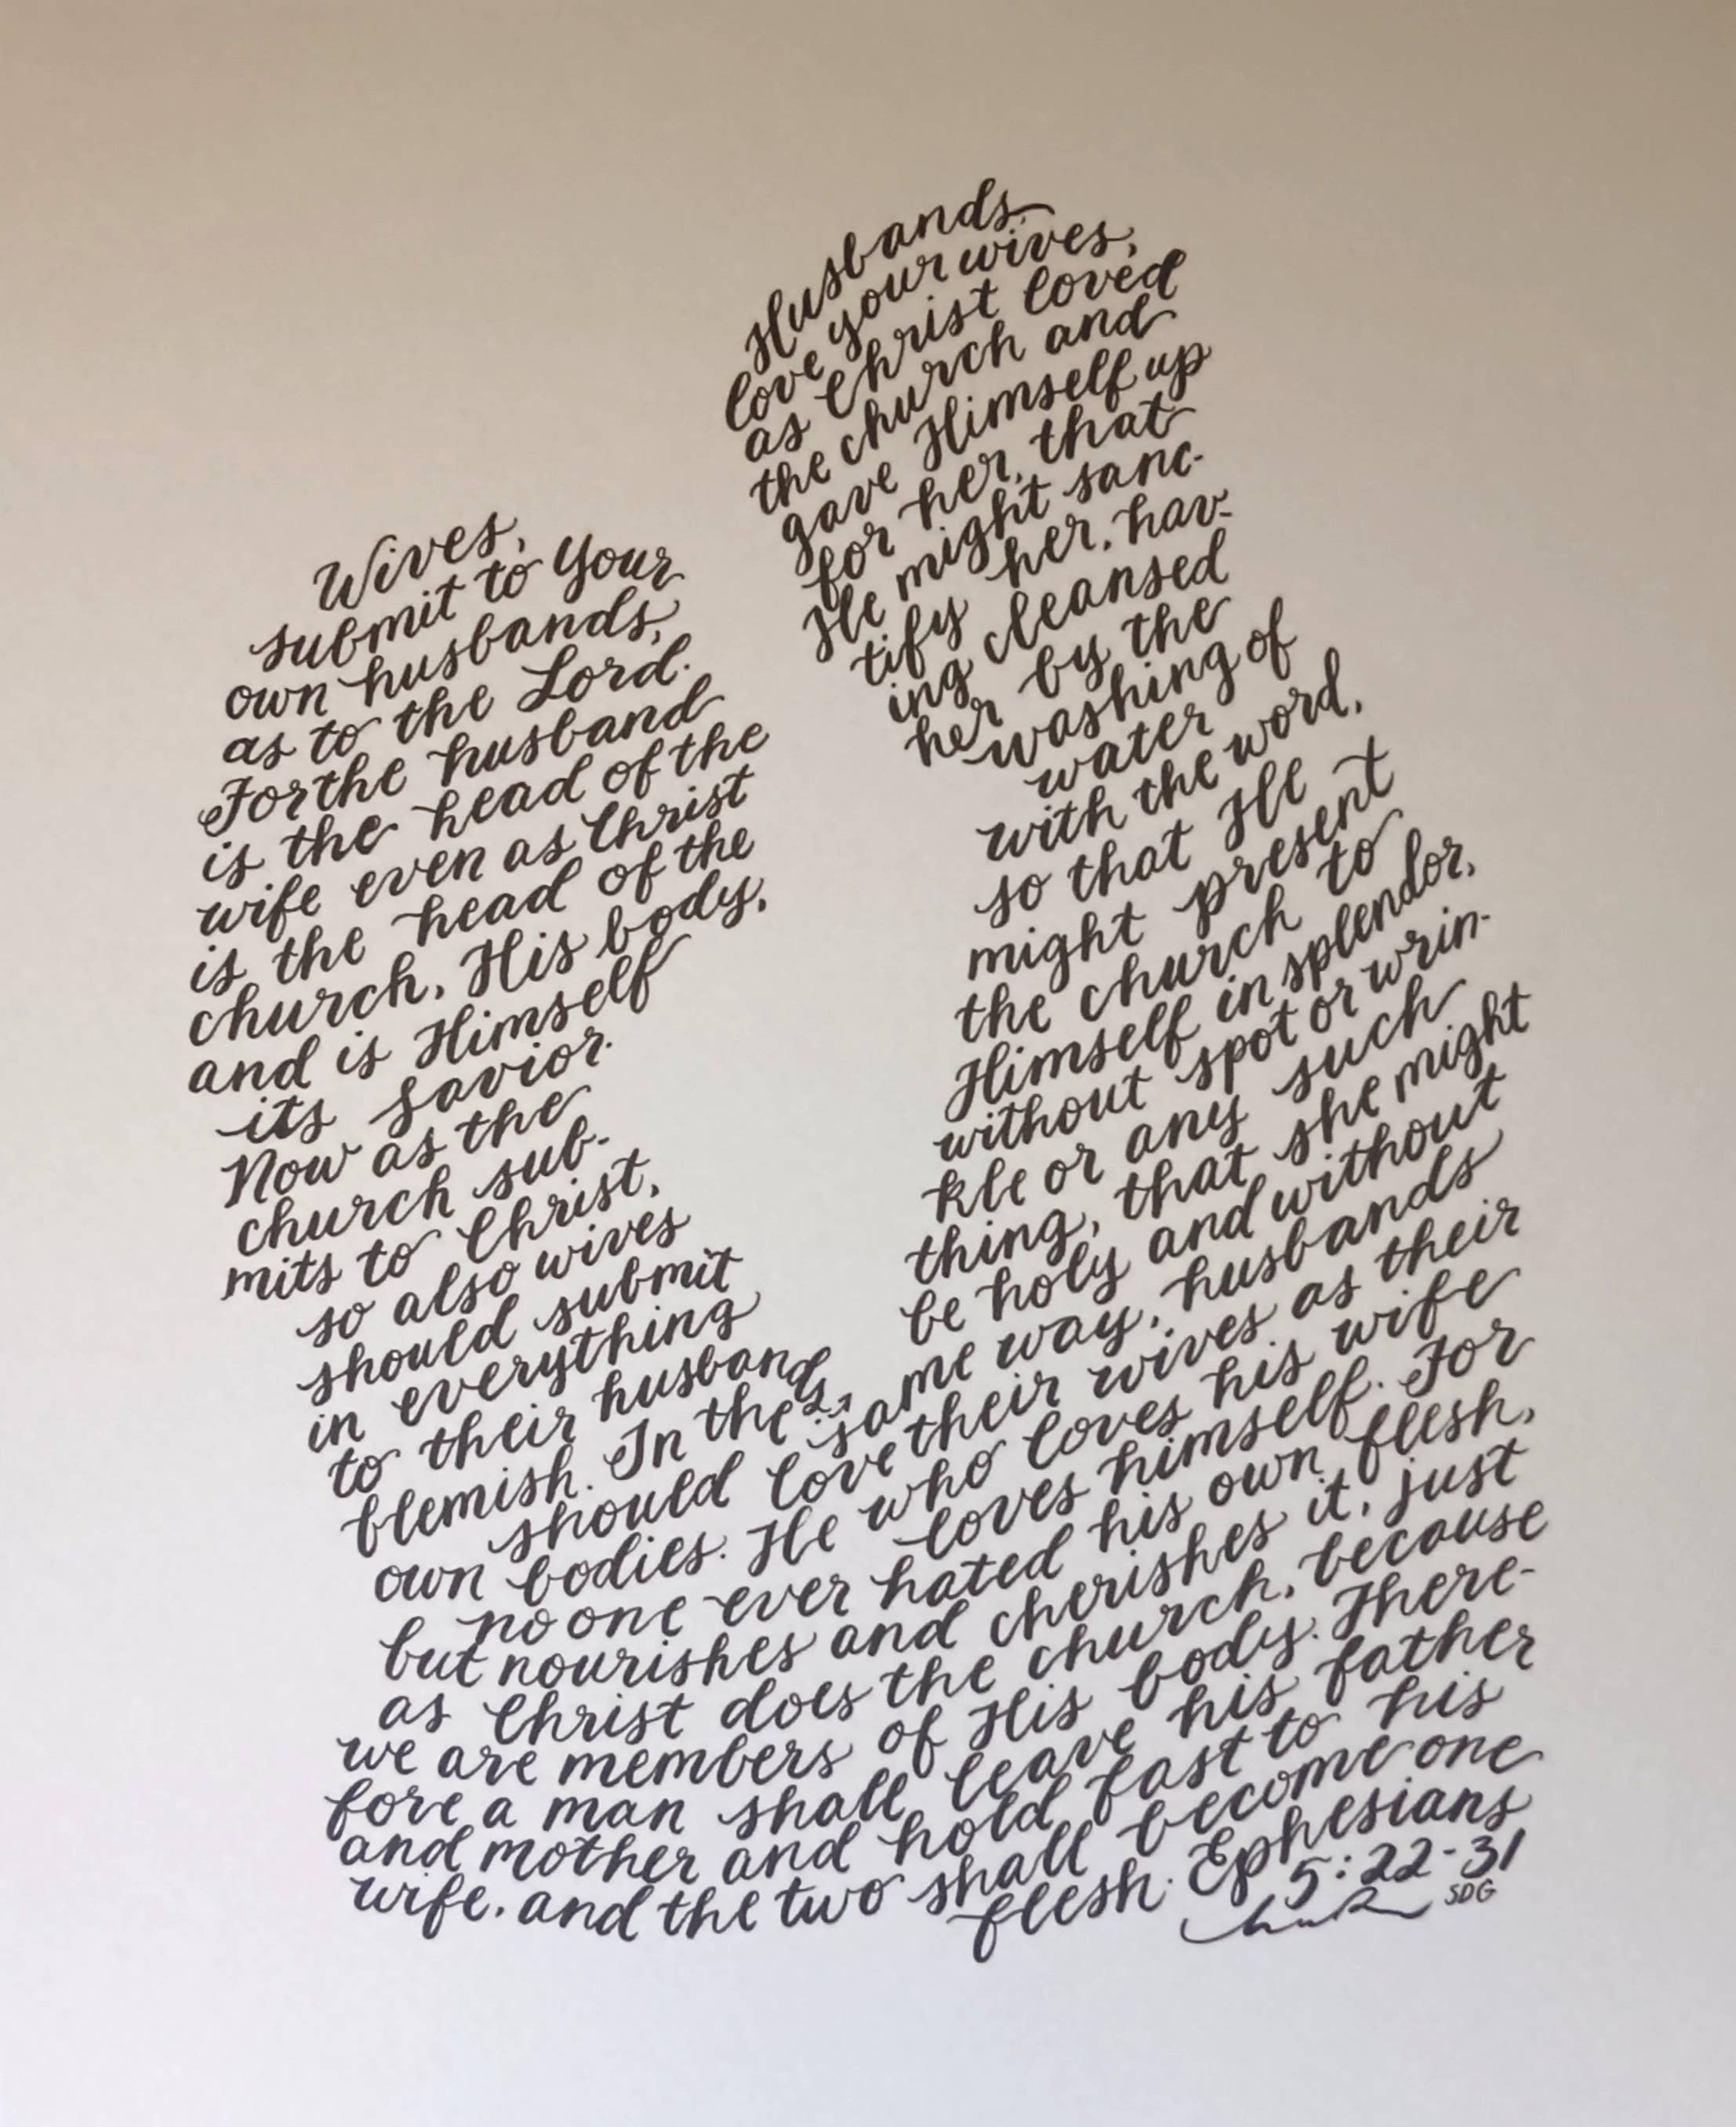 Wives,
submit to your
own husbands,
as to the Lord.
For the husband
is the head of the
wife even as Christ
is the head of the
church, His body,
and is Himself
its Savior.
Now as the
church sub-
mits to Christ,
so also wives
should submit
in everything
to their husbands.
Husbands,
love your wives,
as Christ loved
the church and
gave Himself up
for her, that
He might sanc-
tify her, hav-
ing cleansed
her by the
washing of
water
with the word,
so that He
might present
the church to
Himself in splendor,
without spot or wrin-
kle or any such
thing, that she might
be holy and without
blemish. In the same way, husbands
should love their wives as their
own bodies. He who loves his wife
loves himself. For
no one ever hated his own flesh,
but nourishes and cherishes it, just
as Christ does the church, because
we are members of His body. There-
fore a man shall leave his father
and mother and hold fast to his
wife, and the two shall become one
flesh. Ephesians
5:22-31
SDG